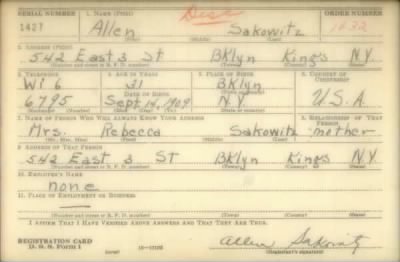 SERIAL NUMBER 1. NAME (Print) ORDER NUMBER
1427 Allen Sakowitz 1632
(First) (Middle) (Last)
2. ADDRESS (Print)
542 East 3 St BKlyn Kings N.Y.
(Number and street or R. F. D. number) (Town) (County) (State)
3. TELEPHONE 4. AGE IN YEARS 5. PLACE OF BIRTH 6. COUNTRY OF CITIZENSHIP
WI 6 31 BKlyn
DATE OF BIRTH (Town or county)
6795 Sept. 14, 1909 N.Y. U.S.A.
(Exchange) (Number) (Mo.) (Day) (Yr.) (State or country)
7. NAME OF PERSON WHO WILL ALWAYS KNOW YOUR ADDRESS 8. RELATIONSHIP OF THAT PERSON
Mrs. Rebecca Sakowitz mother
(Mr., Mrs., Miss) (First) (Middle) (Last)
9. ADDRESS OF THAT PERSON
542 East 3 ST BKlyn Kings N.Y.
(Number and street or R. F. D. number) (Town) (County) (State)
10. EMPLOYER'S NAME
none
11. PLACE OF EMPLOYMENT OR BUSINESS
(Number and street or R. F. D. number) (Town) (County) (State)
I AFFIRM THAT I HAVE VERIFIED ABOVE ANSWERS AND THAT THEY ARE TRUE.
REGISTRATION CARD
D. S. S. Form 1 Allen Sakowitz
(Registrant's signature)